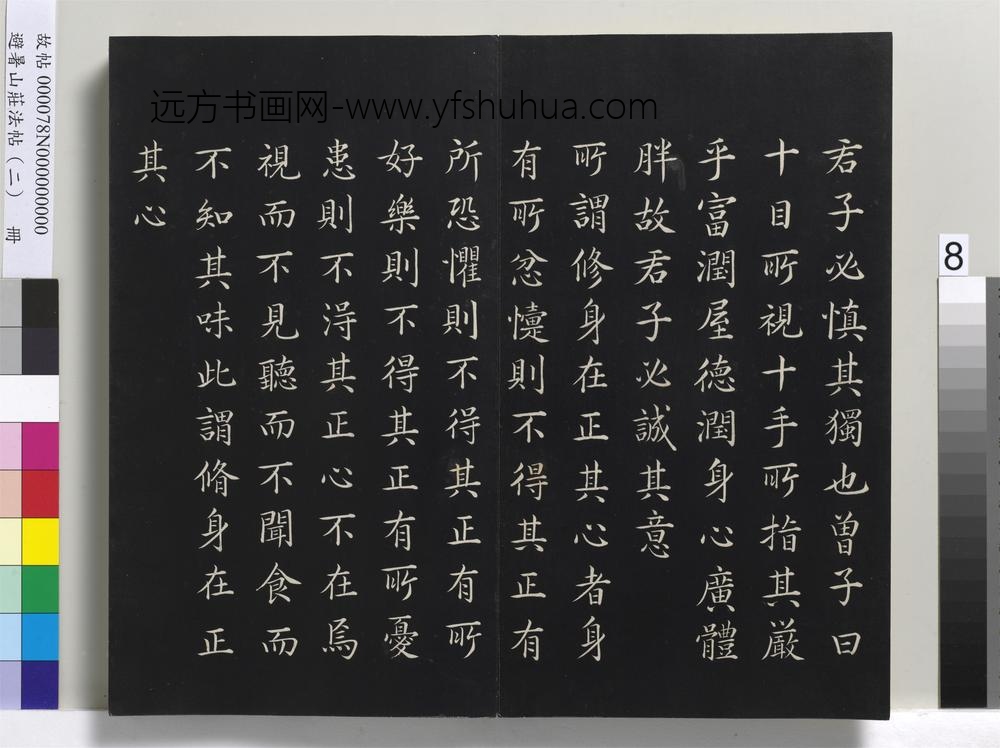 君子必慎其獨也曽子曰
十目所視十手所指其嚴
乎富潤屋德潤身心廣體
胖故君子必誠其意
所謂修身在正其心者身
有所忿懥則不得其正有
所恐懼則不得其正有所
好樂則不得其正有所憂
患則不得其正心不在焉
視而不見聽而不聞食而
不知其味此謂脩身在正
其心
远方书画网-www.yfshuhua.com
故帖 000078N000000000
避暑山莊法帖(二) 冊
8